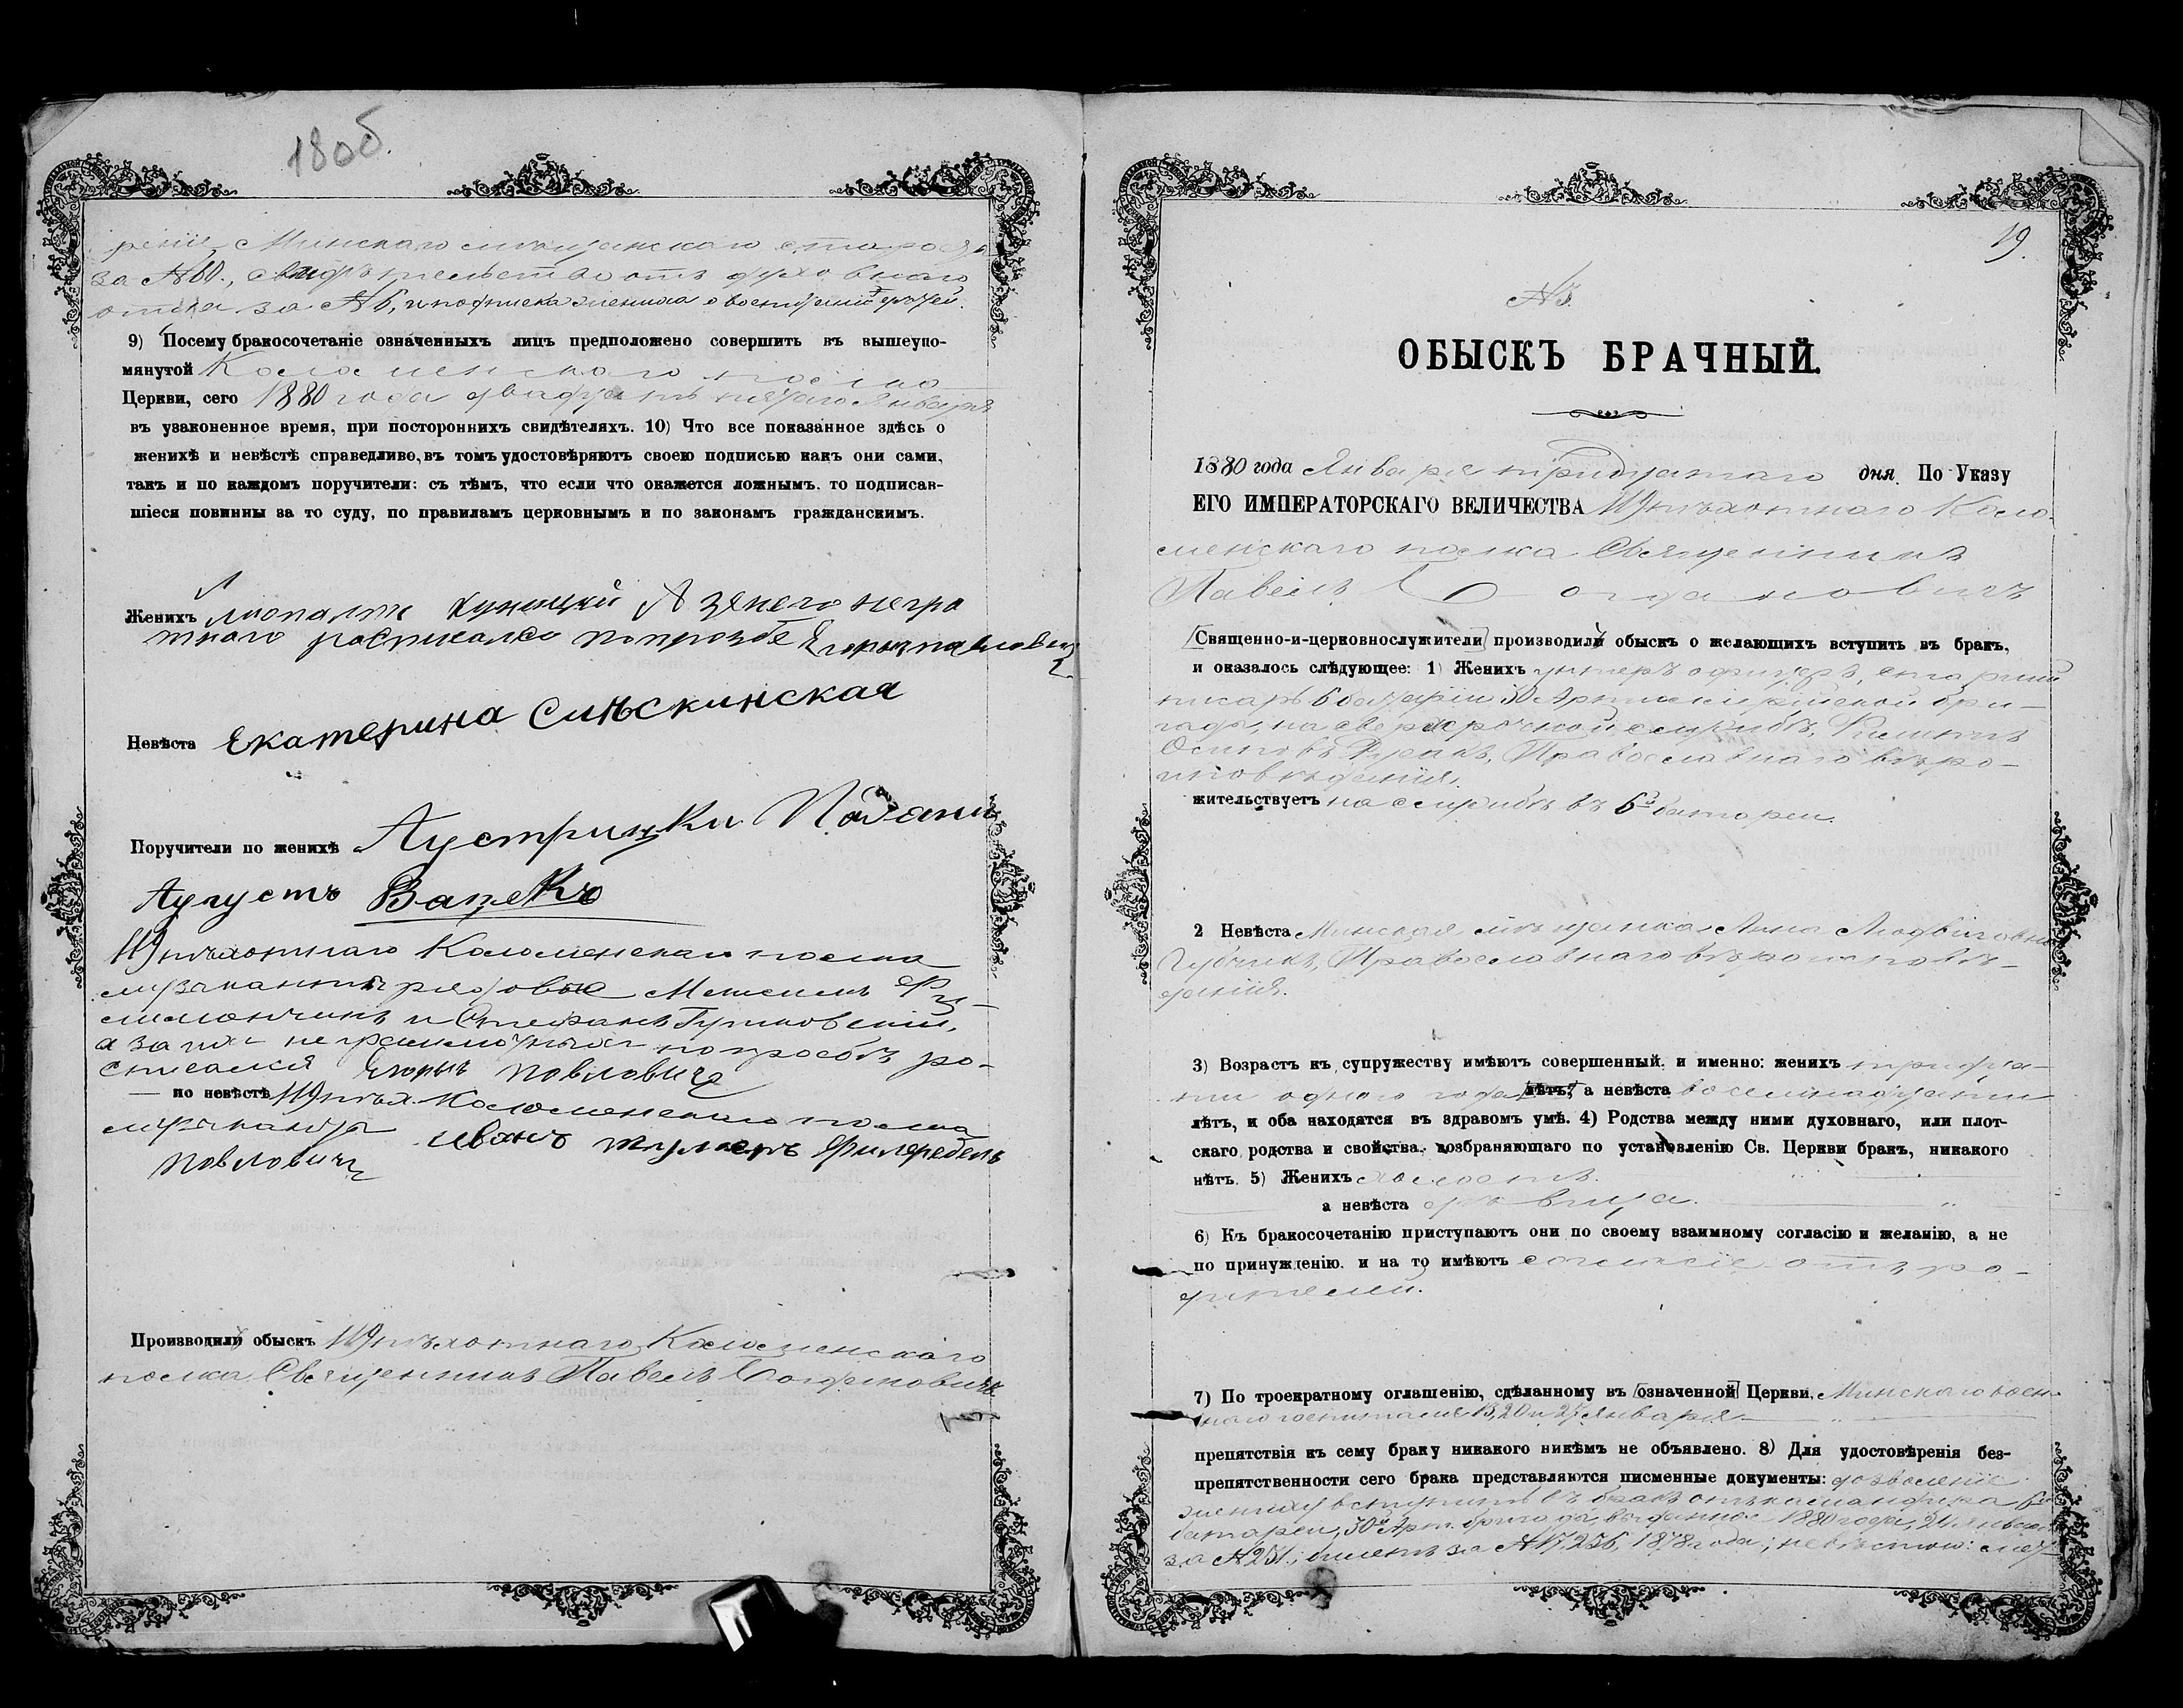 18об.
за № 60., свидѣтельство отъ духовнаго
отца за № 6, и подписка жениха о
9) Посему бракосочетаніе означенныхъ лицъ предположено совершить въ вышеупо-
мянутой Коломенскаго полка
Церкви, сего 1880 года двадцать пятаго Января
въ узаконенное время, при постороннихъ свидѣтеляхъ. 10) Что все показанное здѣсь о
женихѣ и невѣстѣ справедливо, въ томъ удостовѣряютъ своею подписью какъ они сами,
такъ и по каждомъ поручители: съ тѣмъ, что если что окажется ложнымъ, то подписав-
шіеся повинны за то суду, по правиламъ церковнымъ и по законамъ гражданскимъ.
Женихъ
Невѣста Екатерина
Поручители по женихѣ
Аугустъ Вацекъ
119 пѣхотнаго Коломенскаго полка
музыканты рядовые
и Стефанъ Гутковскій,
а за нихъ неграмотныхъ по просьбѣ ро-
списался Павловичъ
по невѣстѣ 119 пѣх. Коломенскаго полка
музыканты
Павловичъ Иванъ
Производилъ обыскъ 119 пѣхотнаго Коломенскаго
полка Священникъ Павелъ Богдановичъ
19.
№ 3.
ОБЫСКЪ БРАЧНЫЙ.
1880 года Января тридцатаго дня. По Указу
ЕГО ИМПЕРАТОРСКАГО ВЕЛИЧЕСТВА 119 пѣхотнаго Коло-
менскаго полка Священникъ
Павелъ Богдановичъ
Священно-и-церковнослужители производилъ обыскъ о желающихъ вступить въ бракъ,
и оказалось слѣдующее: 1) Женихъ унтеръ офицеръ, старшій
писарь 6 батареи 30 Артиллерійской бри-
гады, на сверхсрочной службѣ, Филиппъ
Осиповъ Православнаго вѣро-
исповѣданія,
жительствуетъ на службѣ въ 6й батареи.
2 Невѣста Минская мѣщанка Анна Людвиговна
Православнаго вѣроисповѣ-
данія.
3) Возрастъ къ супружеству имѣютъ совершенный, и именно: женихъ тридца-
ти одного года лѣтъ, а невѣста восемнадцати
лѣтъ, и оба находятся въ здравомъ умѣ. 4) Родства между ними духовнаго, или плот-
скаго родства и свойства, возбраняющаго по установленію Св. Церкви бракъ, никакого
нѣтъ. 5) Женихъ холостъ.
а невѣста дѣвица.
6) Къ бракосочетанію приступаютъ они по своему взаимному согласію и желанію, а не
по принужденію, и на то имѣютъ согласіе отъ ро-
дителей.
7) По троекратному оглашенію, сдѣланному въ означенной Церкви, Минскаго воен-
наго госпиталя 13, 20 и 27 января
препятствія къ сему браку никакого никѣмъ не объявлено. 8) Для удостовѣренія без-
препятственности сего брака представляются писменные документы: дозволеніе
жениху вступить въ бракъ отъ командира 6й
батареи, 30й Арт. бригады, выданное 1880 года, 24 января
за № 251; билетъ за № 17,236, 1878 года; невѣстою: